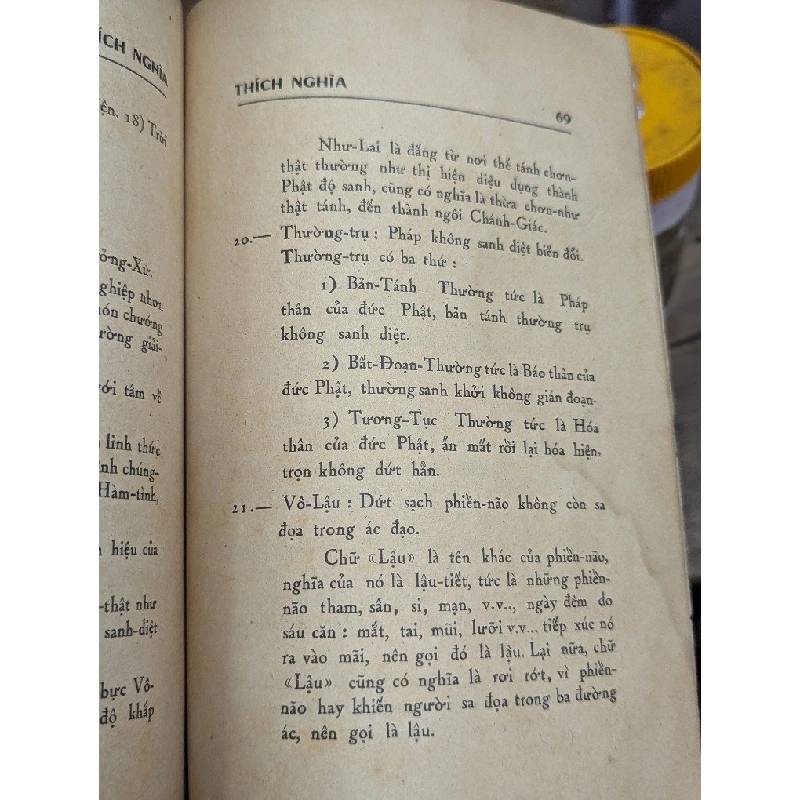 ÍCH NGHĨA
ện. 18) Trời
ởng-Xứ.
ghiệp nhơn
ón chướng
ường giải-
ới tâm về
linh thức
nh chúng-
Hàm-tình,
hiệu của
-thật như
sanh-diệt
bực Vô-
độ khắp
THÍCH NGHĨA
69
Như-Lai là đấng từ nơi thể tánh chơn-
thật thường như thị hiện diệu dụng thành
Phật độ sanh, cũng có nghĩa là thừa chơn-như
thật tánh, đến thành ngôi Chánh-Giác.
20.— Thường-trụ : Pháp không sanh diệt biến đổi.
Thường-trụ có ba thứ :
1) Bản-Tánh Thường tức là Pháp
thân của đức Phật, bản tánh thường trụ
không sanh diệt.
2) Bất-Đoạn-Thường tức là Báo thân của
đức Phật, thường sanh khởi không gián đoạn.
3) Tương-Tục Thường tức là Hóa
thân của đức Phật, ẩn mất rồi lại hóa hiện,
trọn không dứt hẳn.
21.— Vô-Lậu : Dứt sạch phiền-não không còn sa
đọa trong ác đạo.
Chữ «Lậu» là tên khác của phiền-não,
nghĩa của nó là lậu-tiết, tức là những phiền-
não tham, sân, si, mạn, v.v.., ngày đêm do
sáu căn : mắt, tai, mũi, lưỡi v.v... tiếp xúc nó
ra vào mãi, nên gọi đó là lậu. Lại nữa, chữ
«Lậu» cũng có nghĩa là rơi rớt, vì phiền-
não hay khiến người sa đọa trong ba đường
ác, nên gọi là lậu.